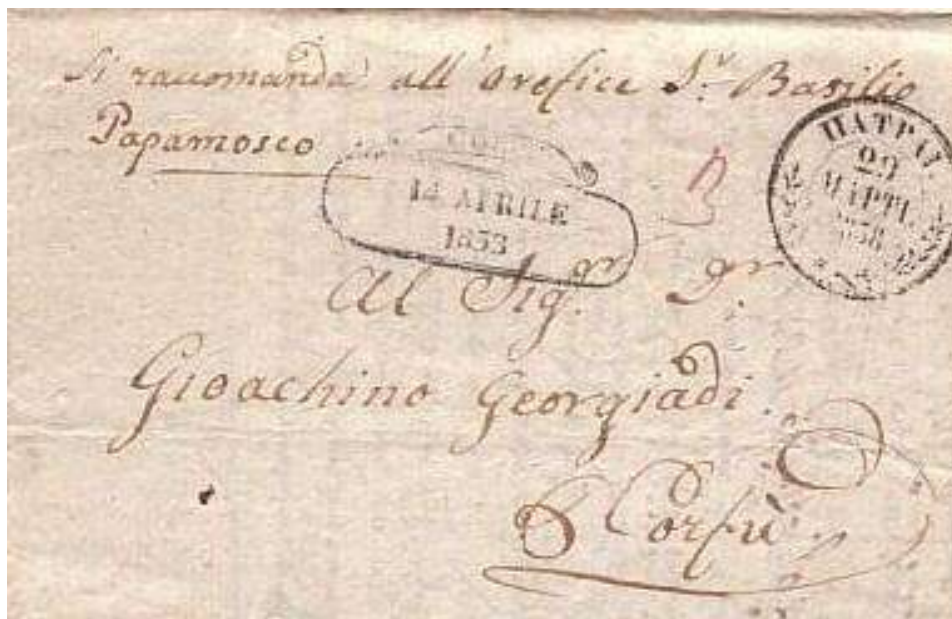 Si raccomanda all'Orefice S.r Basilio
Papamosco
14 APRILE
1858
ΠΑΤΡΑΙ
29
ΜΑΡΤΙ.
1858
Al Sig.r
Gioachino Georgiadi.
Corfù